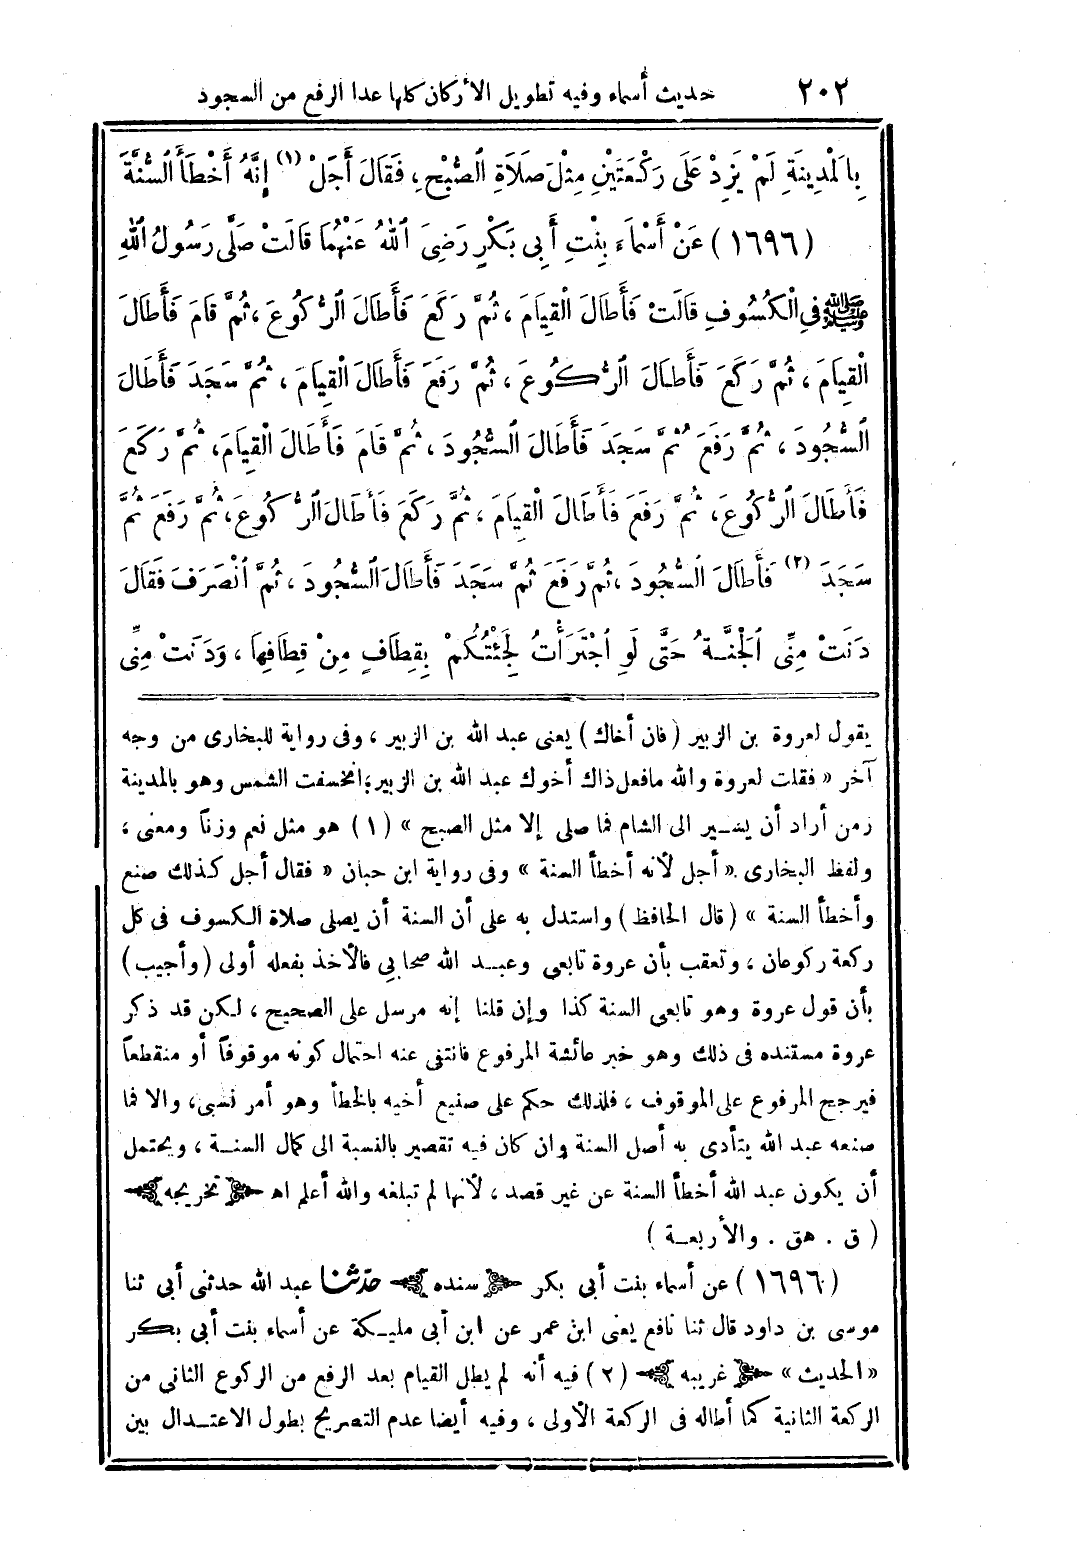 ٢٠٢ حديث أسماء وفيه تطويل الأركان كلها عدا الرفع من السجود
بِالْمَدِينَةِ لَمْ يَزِدْ عَلَى رَكْعَتَيْنِ مِثْلَ صَلَاةِ الصُّبْحِ، فَقَالَ أَجَلْ (١) إِنَّهُ أَخْطَأَ السُّنَّةَ
(١٦٩٦) عَنْ أَسْمَاءَ بِنْتِ أَبِى بَكْرٍ رَضِىَ اللهُ عَنْهُمَا قَالَتْ صَلَّى رَسُولُ اللهِ
ﷺ فِى الْكُسُوفِ قَالَتْ فَأَطَالَ الْقِيَامَ، ثُمَّ رَكَعَ فَأَطَالَ الرُّكُوعَ، ثُمَّ قَامَ فَأَطَالَ
الْقِيَامَ، ثُمَّ رَكَعَ فَأَطَالَ الرُّكُوعَ، ثُمَّ رَفَعَ فَأَطَالَ الْقِيَامَ، ثُمَّ سَجَدَ فَأَطَالَ
السُّجُودَ، ثُمَّ رَفَعَ ثُمَّ سَجَدَ فَأَطَالَ السُّجُودَ، ثُمَّ قَامَ فَأَطَالَ الْقِيَامَ، ثُمَّ رَكَعَ
فَأَطَالَ الرُّكُوعَ، ثُمَّ رَفَعَ فَأَطَالَ الْقِيَامَ، ثُمَّ رَكَعَ فَأَطَالَ الرُّكُوعَ، ثُمَّ رَفَعَ ثُمَّ
سَجَدَ (٢) فَأَطَالَ السُّجُودَ، ثُمَّ رَفَعَ ثُمَّ سَجَدَ فَأَطَالَ السُّجُودَ، ثُمَّ انْصَرَفَ فَقَالَ
دَنَتْ مِنِّى الْجَنَّةُ حَتَّى لَوِ اجْتَرَأْتُ لَجِئْتُكُمْ بِقِطَافٍ مِنْ قِطَافِهَا، وَدَنَتْ مِنِّى
يقول لعروة بن الزبير (فان أخاك) يعنى عبد الله بن الزبير، وفى رواية للبخارى من وجه
آخر «فقلت لعروة والله مافعل ذاك أخوك عبد الله بن الزبير؛ انخسفت الشمس وهو بالمدينة
زمن أراد أن يسير الى الشام فما صلى إلا مثل الصبح» (١) هو مثل نعم وزناً ومعنى،
ولفظ البخارى «أجل لأنه أخطأ السنة» وفى رواية ابن حبان «فقال أجل كذلك صنع
وأخطأ السنة» (قال الحافظ) واستدل به على أن السنة أن يصلى صلاة الكسوف فى كل
ركعة ركوعان، وتعقب بأن عروة تابعي وعبد الله صحابي فالأخذ بفعله أولى (وأجيب)
بأن قول عروة وهو تابعي السنة كذا وإن قلنا إنه مرسل على الصحيح، لكن قد ذكر
عروة مستنده فى ذلك وهو خبر عائشة المرفوع فانتفى عنه احتمال كونه موقوفاً أو منقطعاً
فيرجح المرفوع على الموقوف، فلذلك حكم على صنيع أخيه بالخطأ وهو أمر نسبى، والا فما
صنعه عبد الله يتأدى به أصل السنة وان كان فيه تقصير بالنسبة الى كمال السنة، ويحتمل
أن يكون عبد الله أخطأ السنة عن غير قصد، لأنها لم تبلغه والله أعلم اه تخريجه
(ق . هق . والأربعة)
(١٦٩٦) عن أسماء بنت أبى بكر سنده حدثنا عبد الله حدثنى أبى ثنا
موسى بن داود قال ثنا نافع يعنى ابن عمر عن ابن أبى مليكة عن أسماء بنت أبى بكر
«الحديث» غريبه (٢) فيه أنه لم يطل القيام بعد الرفع من الركوع الثانى من
الركعة الثانية كما أطاله فى الركعة الأولى، وفيه أيضا عدم التصريح بطول الاعتدال بين